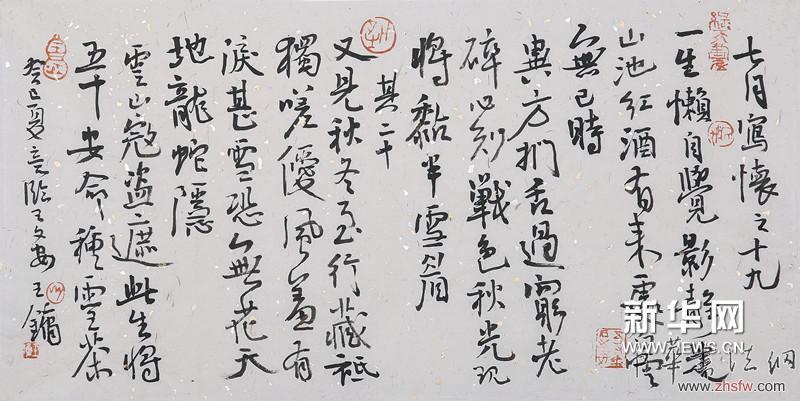 七月寫懷之十九
一生懶自覺影静
山池红酒有来雲
無已時
異方捫舌過窮老
碎心刻戰色秋光現
將黏半雪眉
其二十
又見秋冬至行藏祗
獨嗟優風羞有
淚甚雪恐無花天
地龍蛇隱
雲山寇盜遮此生將
五十安命種雲茶
癸巳夏意臨天
王鏞
新华网
NEWS.CN
法网
www.zhsfw.com